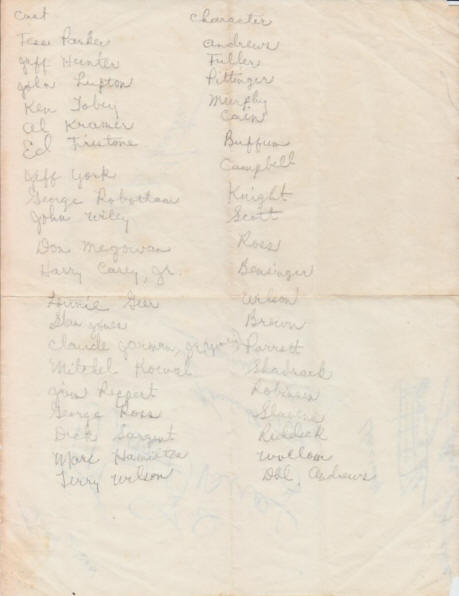 Cast Character
Fess Parker Andrews
Jeff Hunter Fuller
John Lupton Pittinger
Ken Tobey Murphy
Al Kramer Cain
Ed Firestone Buffum
Jeff York Campbell
George Robotham Knight
John Wiley Scott
Don Megowan Ross
Harry Carey, Jr. Bensinger
Lonnie Geer Wilson
Stan Jones Brown
Claude Jarman, Jr. Parrott
Mitchel Kowal Shadrack
Jim Reppert Robinson
George Ross Slavens
Dick Sargent Reddick
Marc Hamilton Wollam
Terry Wilson Dbl. Andrews